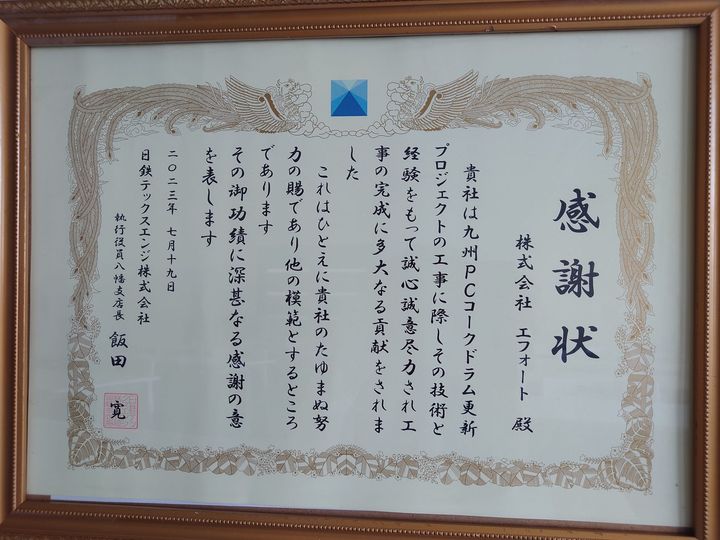 感謝状
株式会社 エフォート 殿
貴社は九州PCコークドラム更新
プロジェクトの工事に際しその技術と
経験をもって誠心誠意尽力され工
事の完成に多大なる貢献をされま
した
これはひとえに貴社のたゆまぬ努
力の賜であり他の模範とするところ
であります
その御功績に深甚なる感謝の意
を表します
二〇二三年 七月十九日
日鉄テックスエンジ株式会社
執行役員八幡支店長 飯田 寛